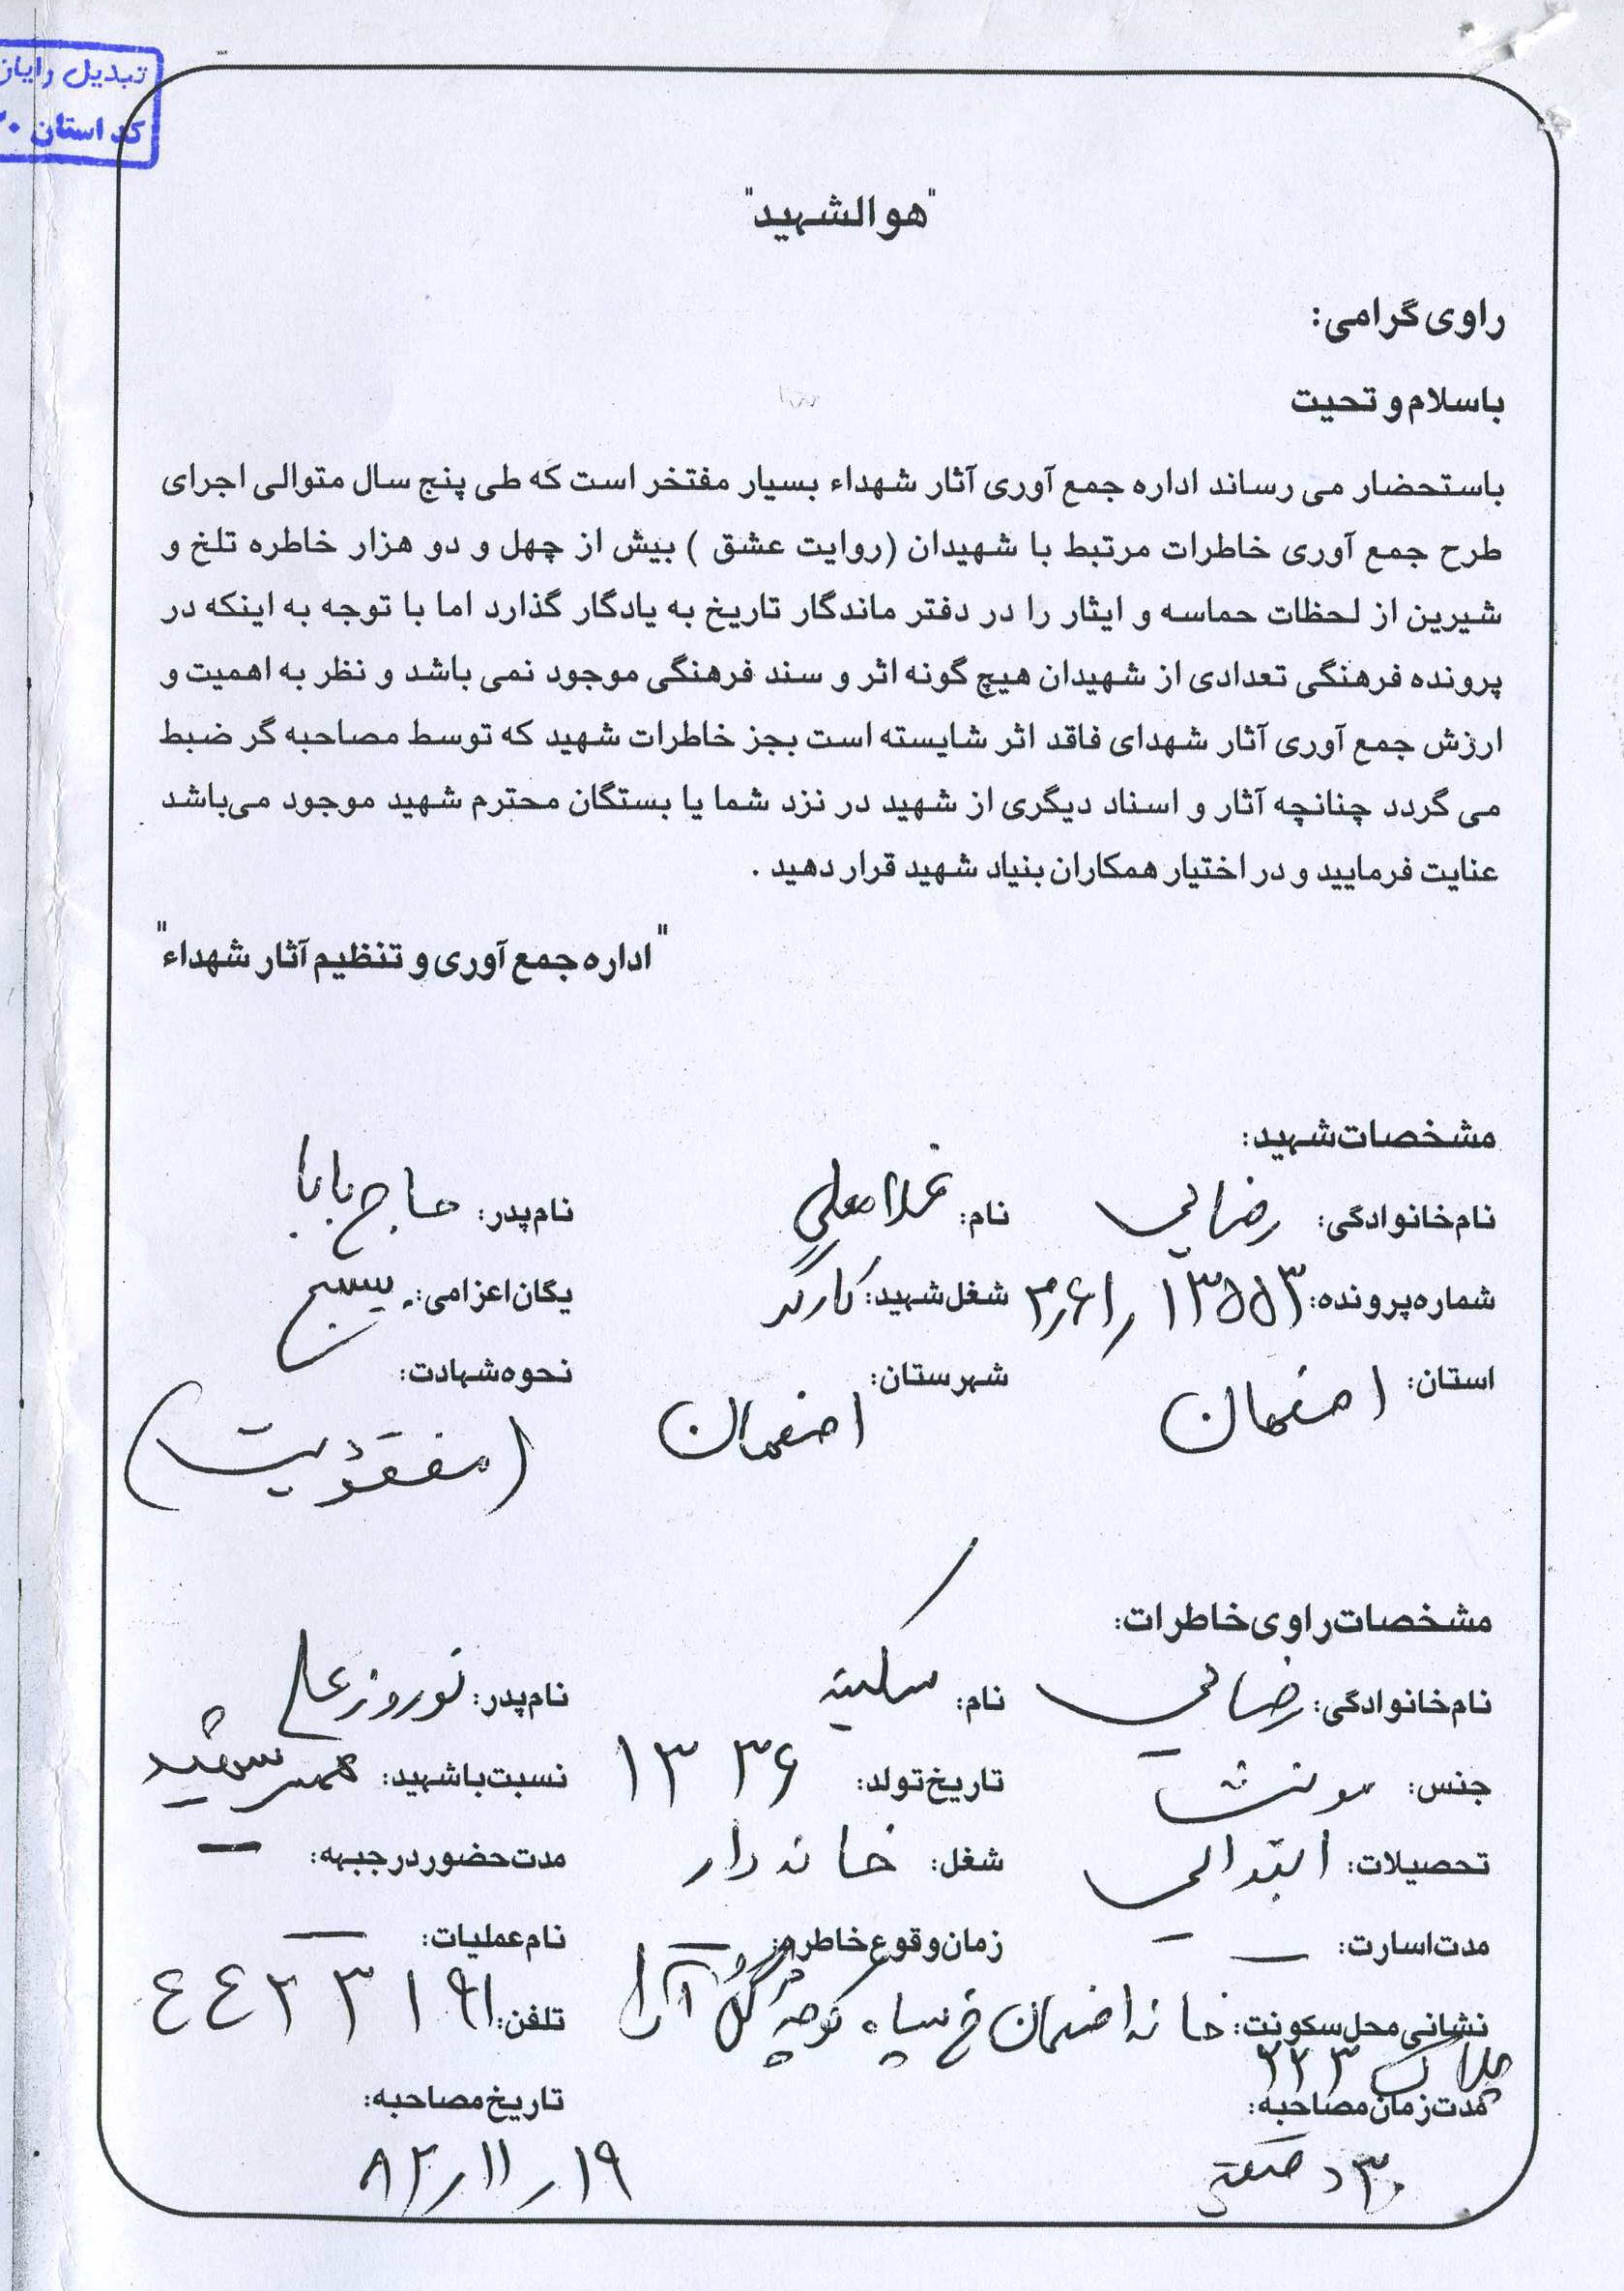 تبدیل رایان
کد استان ۲۰
"هوالشهید"
راوی گرامی:
باسلام و تحیت
باستحضار می رساند اداره جمع آوری آثار شهداء بسیار مفتخر است که طی پنج سال متوالی اجرای
طرح جمع آوری خاطرات مرتبط با شهیدان (روایت عشق ) بیش از چهل و دو هزار خاطره تلخ و
شیرین از لحظات حماسه و ایثار را در دفتر ماندگار تاریخ به یادگار گذارد اما با توجه به اینکه در
پرونده فرهنگی تعدادی از شهیدان هیچ گونه اثر و سند فرهنگی موجود نمی باشد و نظر به اهمیت و
ارزش جمع آوری آثار شهدای فاقد اثر شایسته است بجز خاطرات شهید که توسط مصاحبه گر ضبط
می گردد چنانچه آثار و اسناد دیگری از شهید در نزد شما یا بستگان محترم شهید موجود می‌باشد
عنایت فرمایید و در اختیار همکاران بنیاد شهید قرار دهید .
"اداره جمع آوری و تنظیم آثار شهداء"
مشخصات شهید:
نام خانوادگی: رضایی نام: غلامعلی نام پدر: حاج بابا
شماره پرونده: ۱۳۵۵۳ شغل شهید: کارگر یگان اعزامی: بسیج
استان: اصفهان شهرستان: اصفهان نحوه شهادت: (مفقودیت)
مشخصات راوی خاطرات:
نام خانوادگی: رضایی نام: سکینه نام پدر: نوروز علی
جنس: مونث تاریخ تولد: ۱۳۳۶ نسبت با شهید: همسر شهید
تحصیلات: ابتدایی شغل: خانه دار مدت حضور در جبهه: —
مدت اسارت: — زمان وقوع خاطره: — نام عملیات: —
نشانی محل سکونت: خانه اصفهان خ سپاه کوچه گل آرا تلفن: ۴۴۲۳۱۹۱
پلاک ۲۲۳
مدت زمان مصاحبه: تاریخ مصاحبه:
۳۰ دقیقه ۸۲/۱۱/۱۹